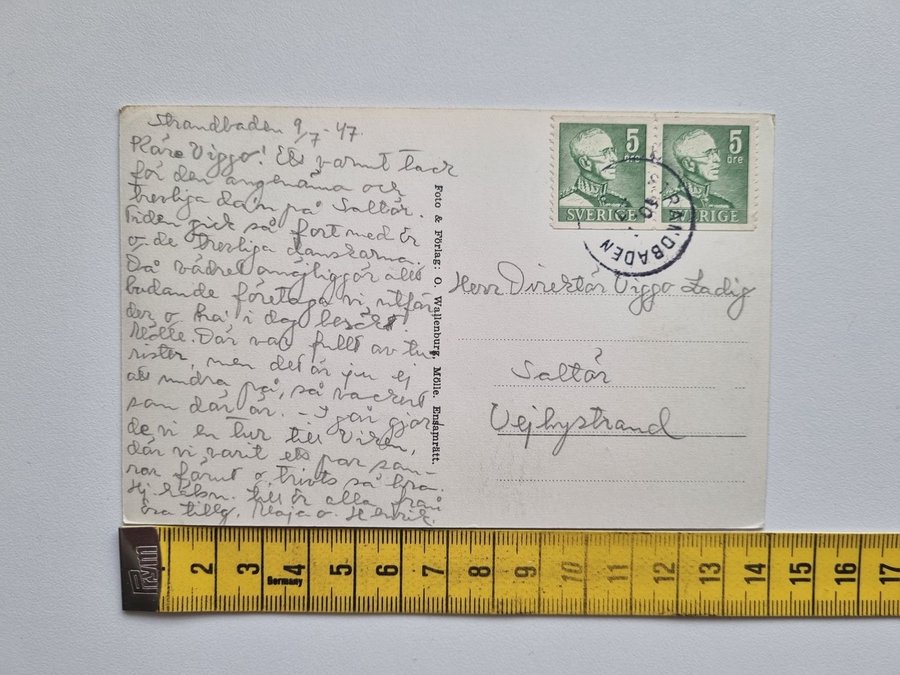 Strandbaden 9/7-47.
Käre Viggo! Ett varmt tack
för den angenäma och
trevliga dan på Saltör.
Tiden gick så fort med Er
o de trevliga danskarna.
Då vädret omöjliggör allt
badande företaga vi utfär
der o ha i dag besökt
Mölle. Där var fullt av tu
rister, men det är ju ej
att undra på, så vackert
som där är. – I går gjor
de vi en tur till Viken,
där vi varit ett par som-
rar förut o. trivts så bra.
Hj. hälsn. till Er alla från
era tillg. Maja o. Henrik.
Foto & Förlag: O. Wallenburg, Mölle. Ensamrätt.
5
öre
SVERIGE
5
öre
SVERIGE
STRANDBADEN
Herr Direktör Viggo Ladig
Saltör
Vejbystrand
Prym
2 3 4 5 6 7 8 9 10 11 12 13 14 15 16 17
Germany